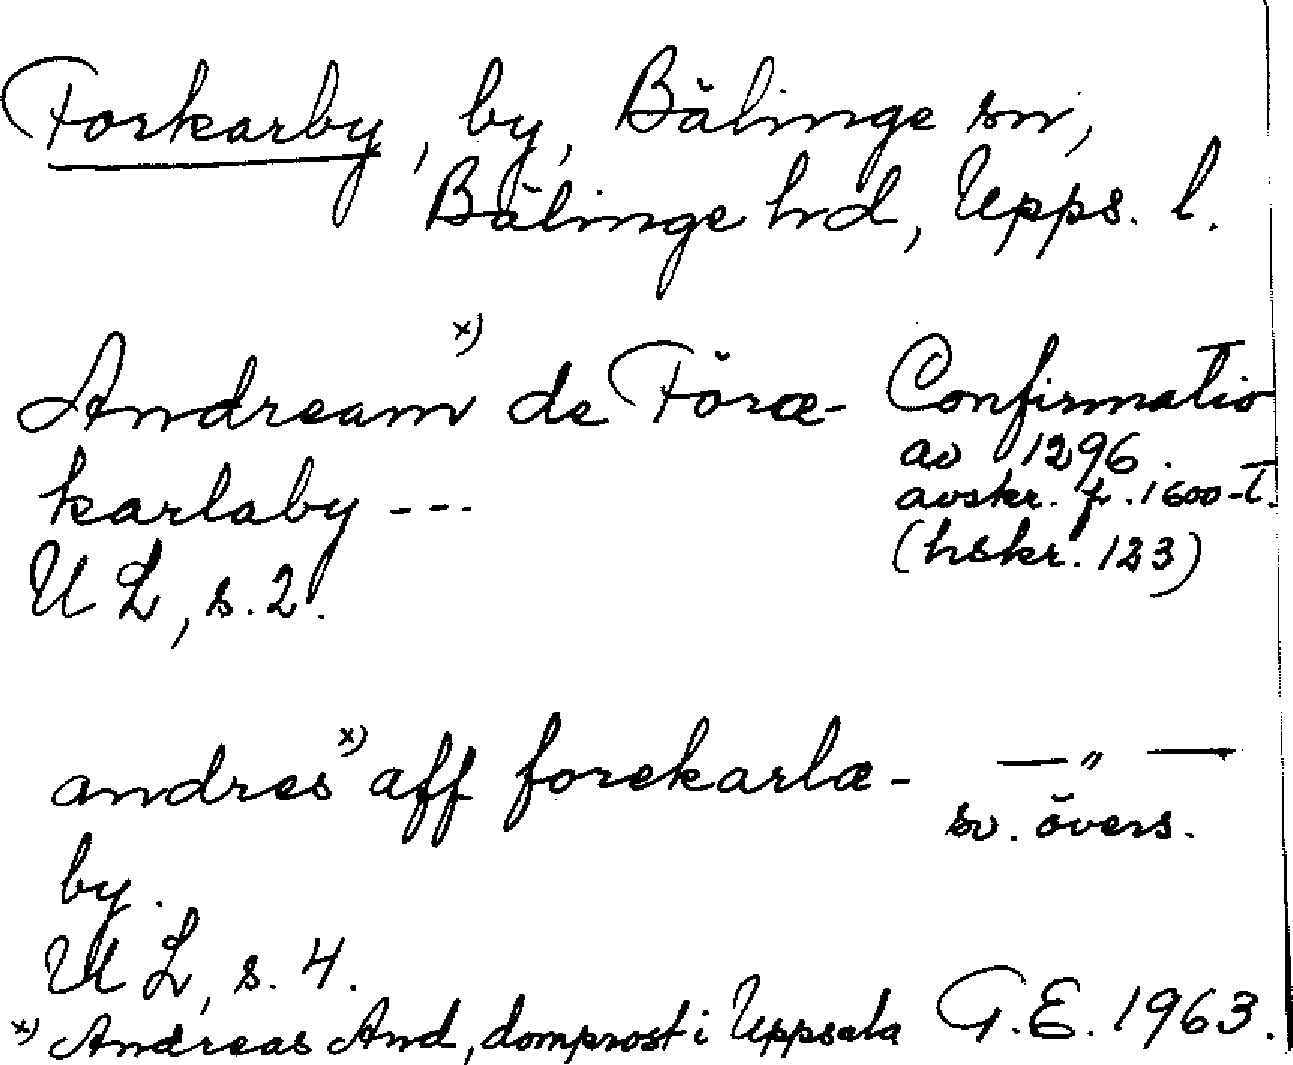 Forkarby, by, Bälinge sn,
Bälinge hd, Upps. l.
Andream x) de Föræ-
karlaby ---
UL, s. 2.
Confirmatio
av 1296.
avskr. fr. 1600-t.
(hskr. 123)
andres x) aff forekarlæ-
by.
UL, s. 4.
— " —
sv. övers.
x) Andreas And, domprost i Uppsala
G.E. 1963.